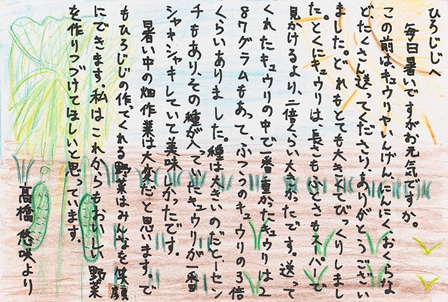 ひろじじへ
毎日暑いですがお元気ですか。
この前はキュウリやいんげん、にんにく、おくらな
ど、たくさん送ってくださり、ありがとうござい
ました。どれもとても大きくてびっくりしまし
た。とくにキュウリは、長さもふとさもスーパーで
見かけるより、二倍くらい大きかったです。送って
くれたキュウリの中で一番重かったキュウリは2
87グラムもあって、ふつうのキュウリの3倍
くらいありました。種は大きいのだと一セン
チもあり、その種が入っていたキュウリが一番
シャキシャキしていて美味しかったです。
暑い中の畑作業は大変だと思います。で
もひろじじの作てくれる野菜はみんなを笑顔
にできます。私はこれからもおいしい野菜
を作りつづけてほしいと思っています。
髙橋 悠咲より